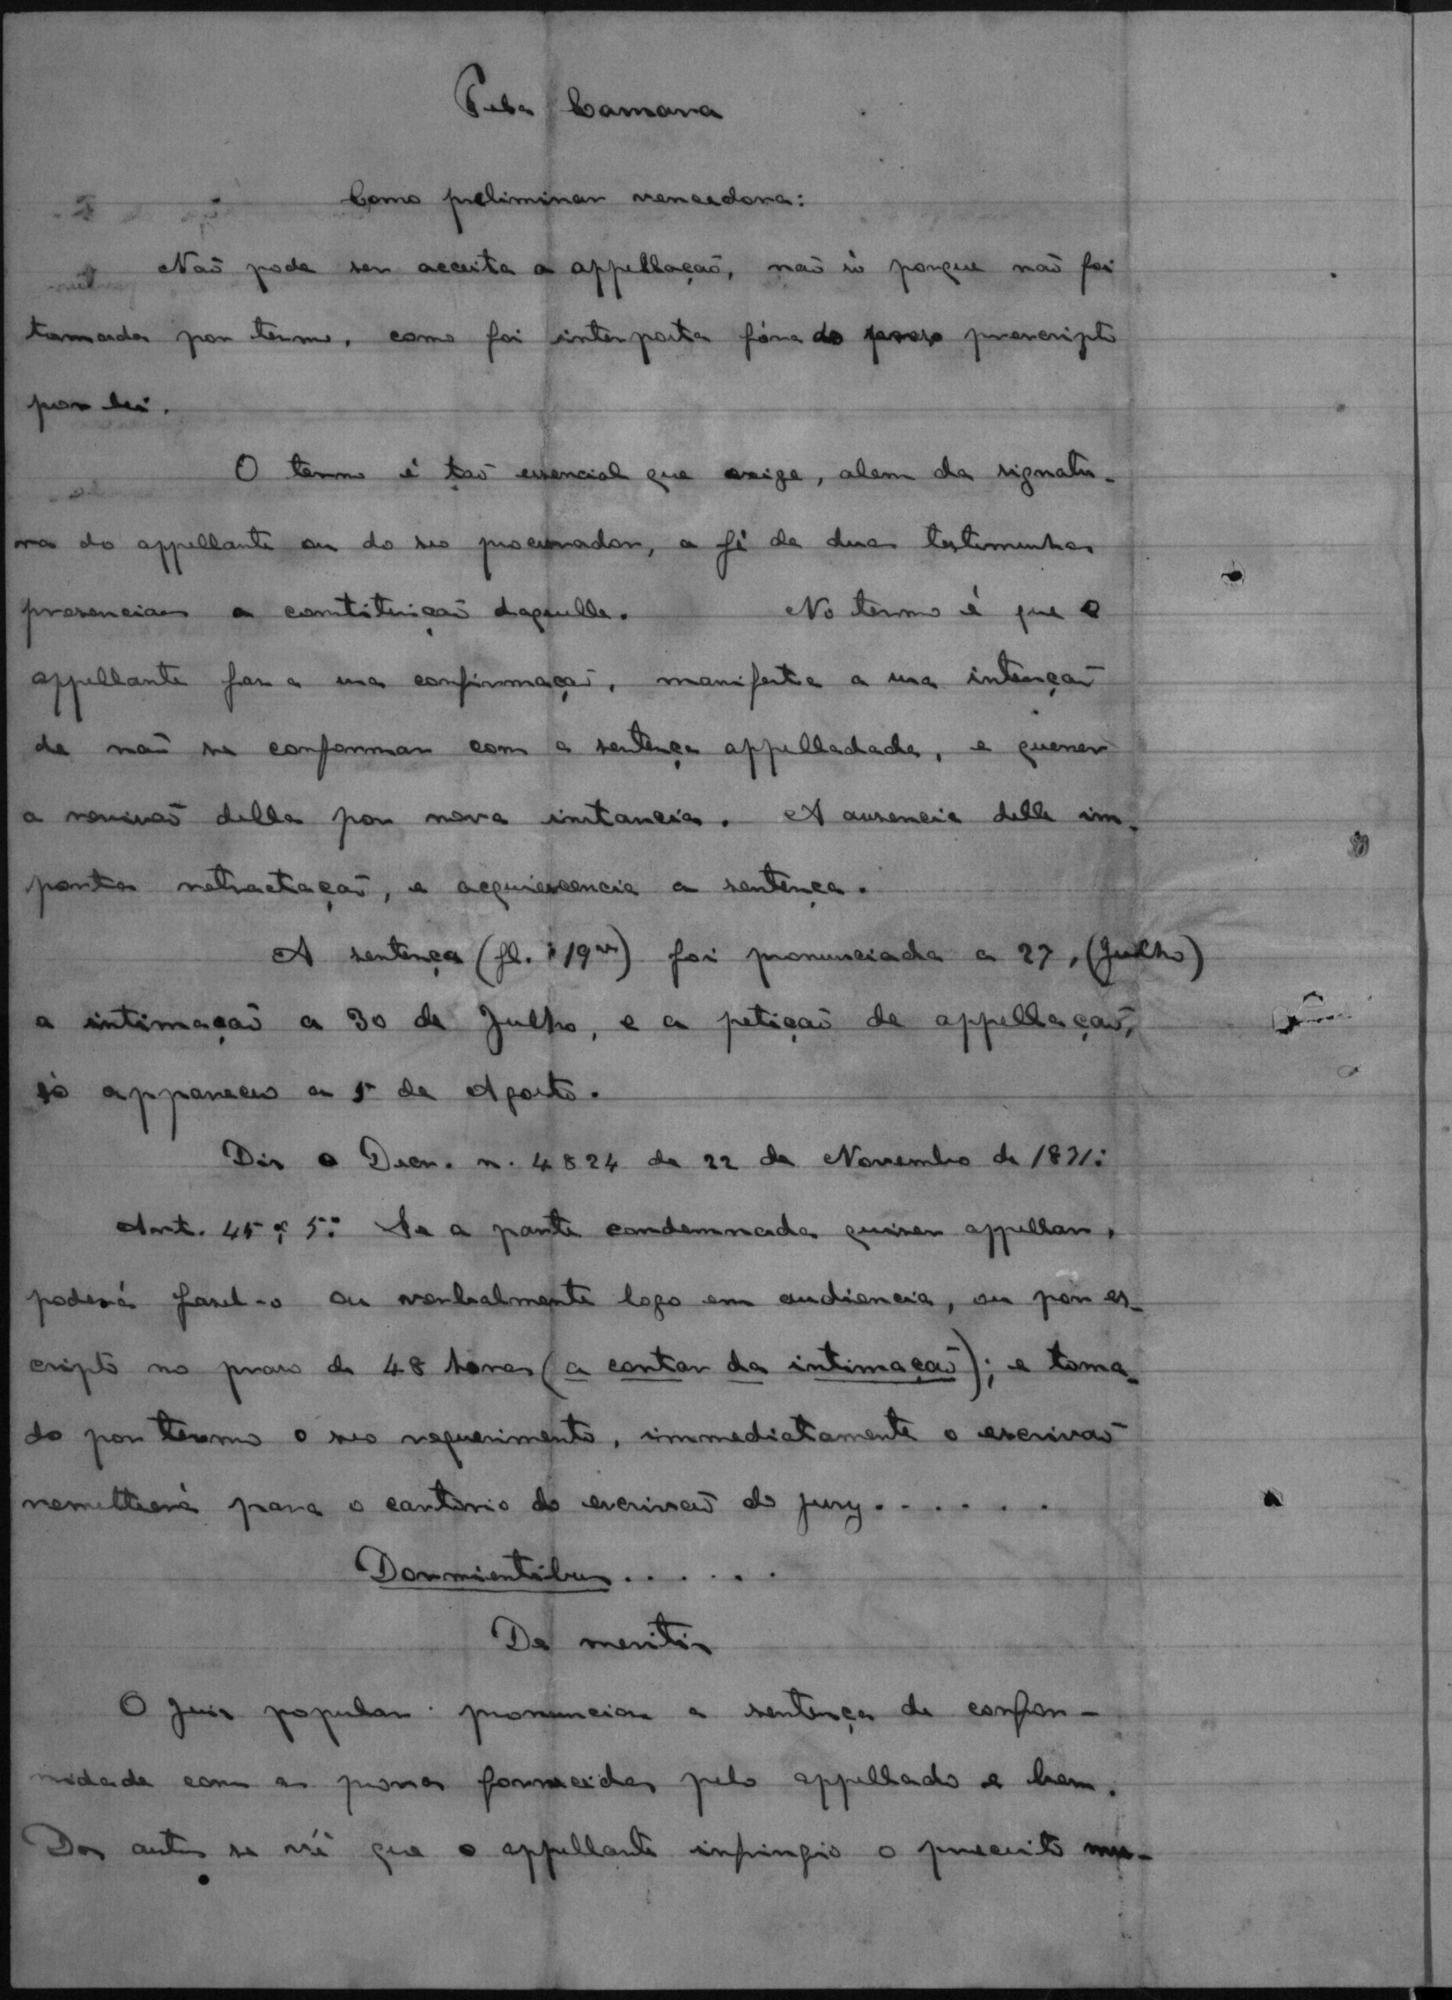 Pela Camara
Como preliminar vencedora:
Não pode ser acceita a appellação, não só porque não foi
tomada por termo, como foi interposta fóra do praso prescripto
por lei.
O termo é tão essencial que exige, alem da signatu-
ra do appellante ou do seo procurador, a fé de duas testimunhas
presenciaes a constituição daquelle. No termo é que o
appellante faz a sua confirmação, manifesta a sua intenção
de não se conformar com a sentença appelladada, e querer
a revisão della por nova instancia. A ausencia delle im-
porta retractação, e acquiescencia a sentença.
A sentença (fl. 19) foi pronunciada a 27, (Julho)
a intimação a 30 de Julho, e a petição de appellação,
só appareceo a 5 de Agosto.
Diz o Decr. n. 4824 de 22 de Novembro de 1871:
Art. 45 § 5º: Se a parte condemnada quizer appellar,
poderá fazel-o ou verbalmente logo em audiencia, ou por es-
cripto no praso de 48 horas (a contar da intimação); e toma-
do por termo o seo requerimento, immediatamente o escrivão
remetterá para o cartorio do escrivão do jury......
Dormientibus......
De meritis
O Juiz popular pronunciou a sentença de confor-
midade com as provas fornecidas pelo appellado e bem.
Dos autos se vê que o appellante infringio o preceito mu-